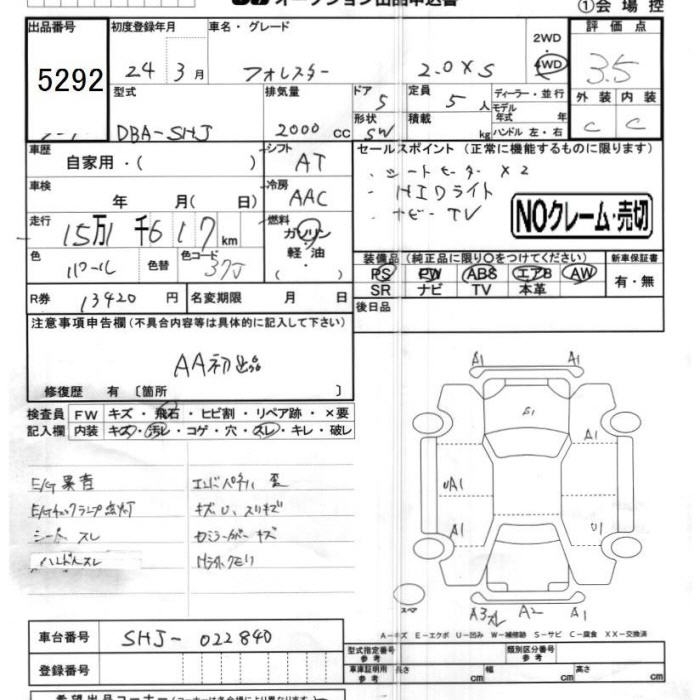 オークション出品申込書
①会場控
出品番号
5292
初度登録年月
24年3月
車名・グレード
フォレスター 2.0XS
2WD
・
4WD
評価点
3.5
外装 内装
C C
型式
DBA-SHJ
排気量
2000 cc
ドア 5
形状 SW
定員 5 人
積載 kg
ディーラー・並行
モデル年式 年
ハンドル 左・右
車歴
自家用・( )
シフト
AT
車検
年 月( 日)
冷房
AAC
走行
15万1千617km
燃料
ガソリン
軽油
( )
色
パール
色替
色コード
37J
R券 13420 円
名変期限 月 日
セールスポイント(正常に機能するものに限ります)
・シートヒーター X2
・HIDライト
・ナビ-TV
NOクレーム・売切
装備品(純正品に限り○をつけてください)
PS PW ABS エアB AW
SR ナビ TV 本革
新車保証書
有・無
後日品
注意事項申告欄(不具合内容等は具体的に記入して下さい)
AA初出品
修復歴 有〔箇所 〕
検査員
記入欄
FW キズ・飛石・ヒビ割・リペア跡・×要
内装 キズ・汚レ・コゲ・穴・スレ・キレ・破レ
E/G異音
E/Gチェックランプ点灯
シート スレ
ハンドルスレ
エンドパネル 歪
キズ U、スリキズ
Hライトクモリ
A1 A1
G1
A1
UA1
A1
U1
スペア
A3 A2 A1
A-キズ E-エクボ U-凹み W-補修跡 S-サビ C-腐食 XX-交換済
車台番号 SHJ-022840
登録番号
型式指定番号
参考
類別区分番号
参考
車庫証明用
参考
長さ cm 幅 cm 高さ cm
希望出品コーナー